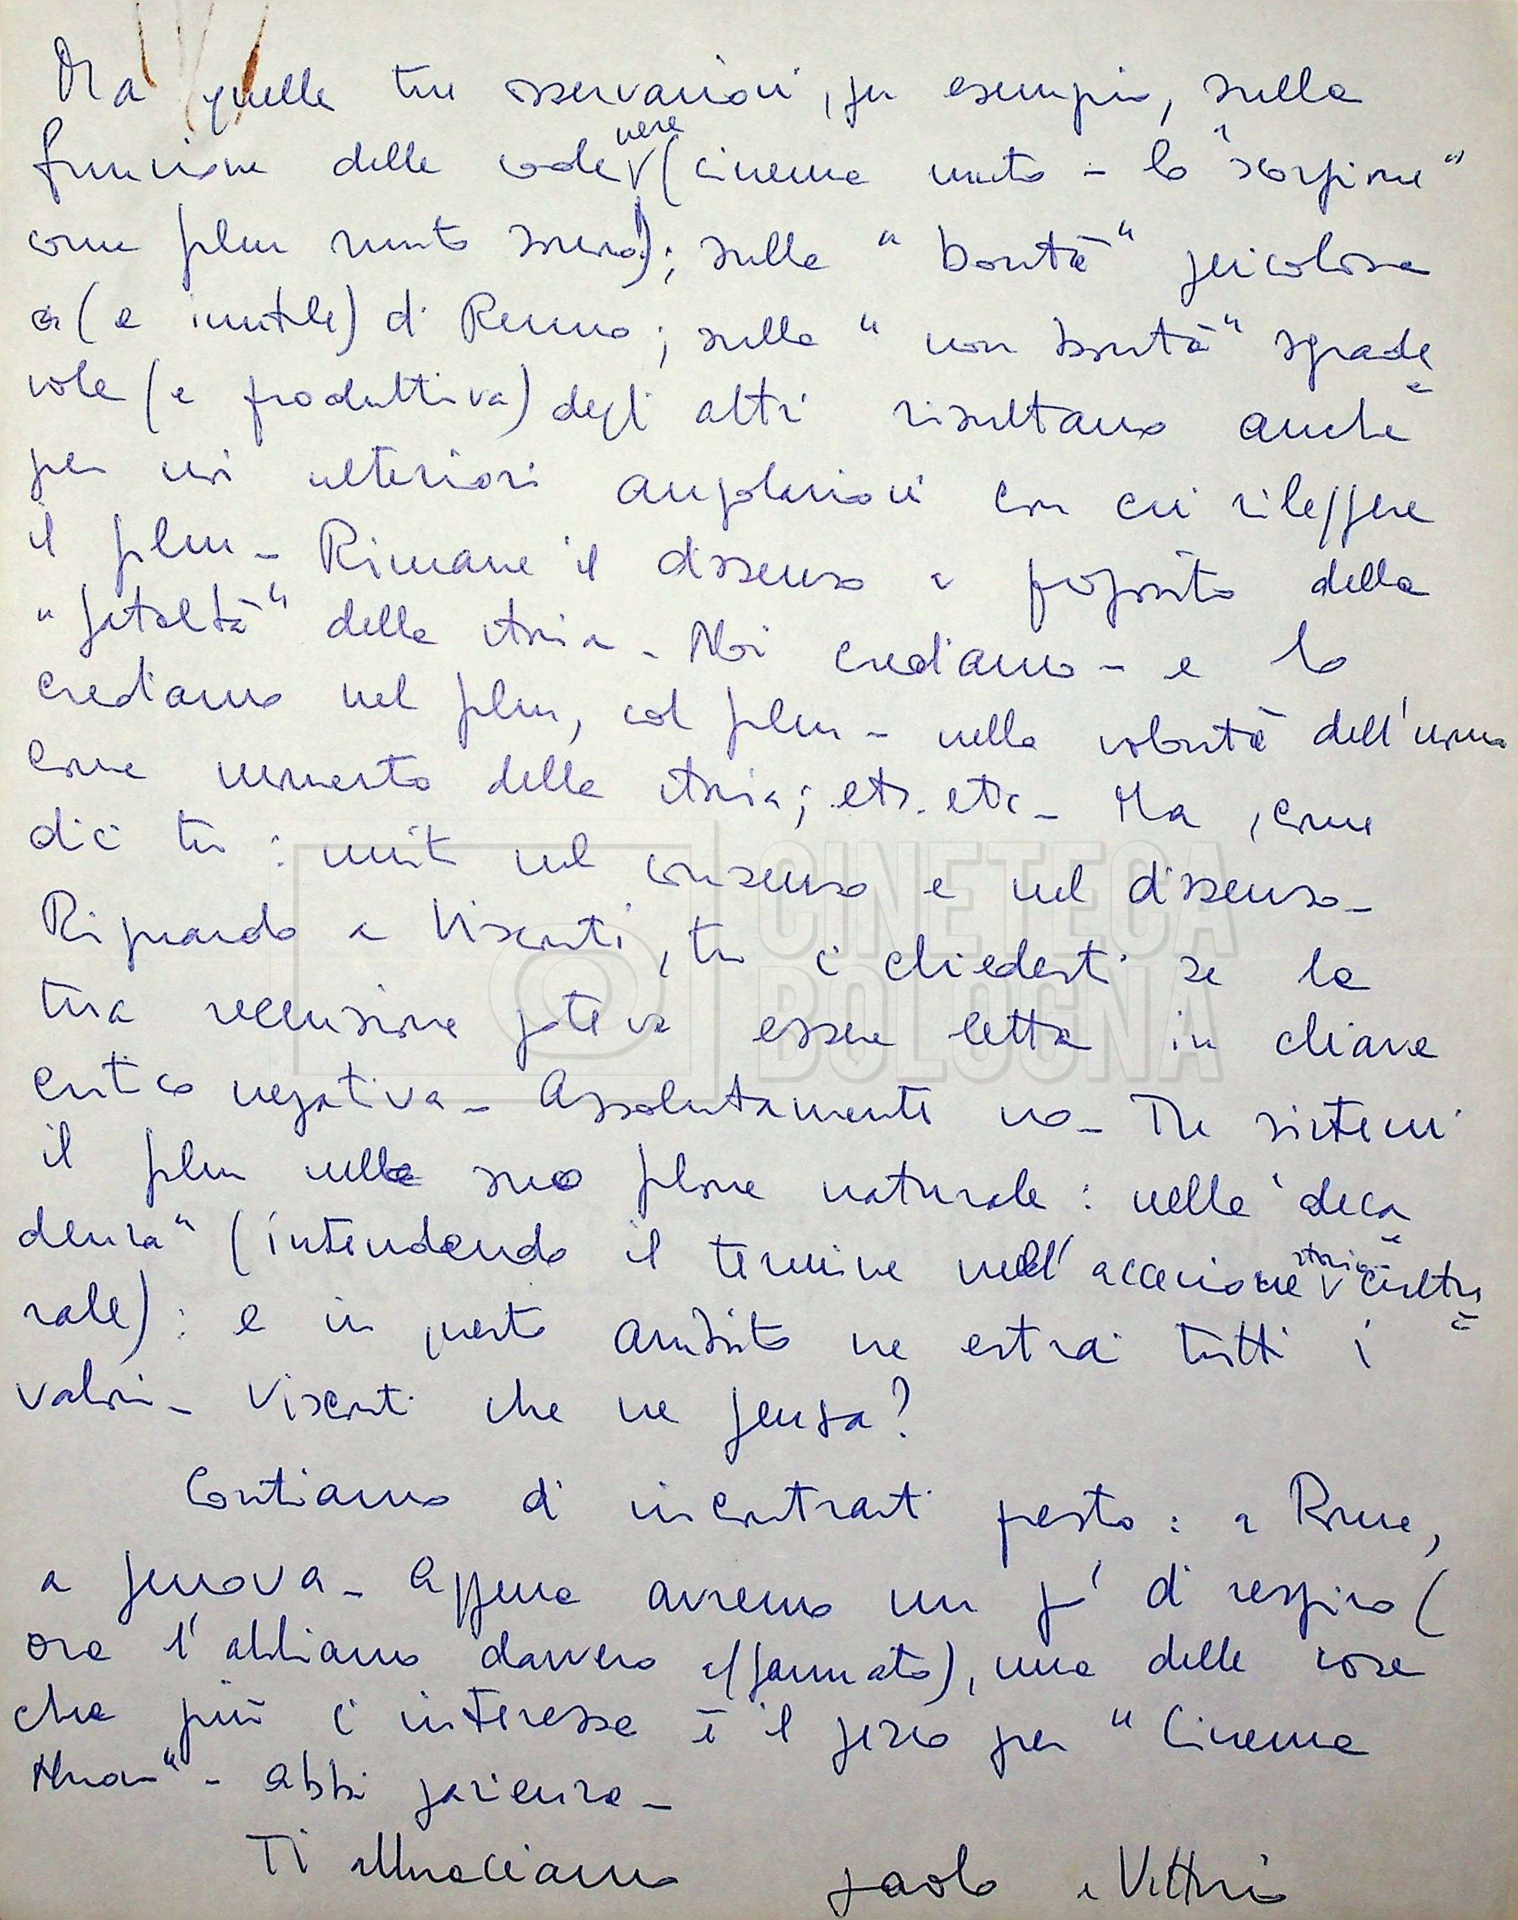 Ma quelle tue osservazioni, per esempio, sulla
funzione delle code nere (cinema muto - lo "scorpione"
come film muto sonoro!); sulla "bontà" pericolosa
(e inutile) di Renno; sulla "non bontà" sgrade
vole (e produttiva) degli altri risultano anche
per noi ulteriori angolazioni con cui rileggere
il film - Rimane il dissenso a proposito della
"fatalità" della storia - Noi crediamo - e lo
crediamo nel film, col film - nella volontà dell'uomo
come momento della storia; etc. etc - Ma, come
dici tu: uniti nel consenso e nel dissenso -
Riguardo a Visconti, tu ci chiedesti se la
tua recensione poteva essere letta in chiave
critico negativa - Assolutamente no - Tu sistemi
il film nel suo filone naturale: nella "deca
denza" (intendendo il termine nell'accezione storico cultu
rale): e in questo ambito ne estrai tutti i
valori - Visconti che ne pensa?
Contiamo di incontrarti presto: a Roma,
a Genova - Appena avremo un po' di respiro (
ora l'abbiamo davvero affannato), una delle cose
che più ci interessa è il pezzo per "Cinema
Nuovo" - Abbi pazienza -
Ti abbracciamo Paolo e Vittorio
CINETECA
BOLOGNA